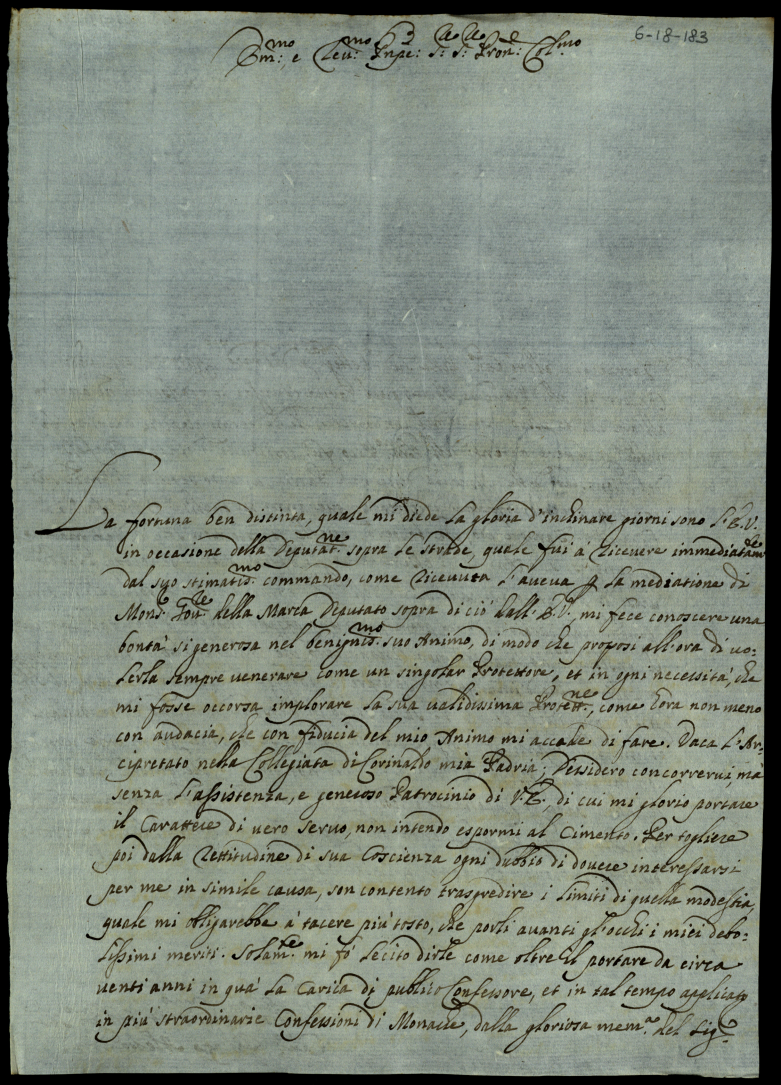 6-18-183
Em:mo e Rev:mo Pnpe: S: S: Pron:e Col:mo
La fortuna ben distinta, quale mi diede la gloria d'inchinare giorni sono l'E.V.
in occasione della Deputat:ne sopra le strade, quale fui à ricevere immediatam:te
dal suo stimatis:mo commando, come ricevuta l'aveva p la mediatione di
Mons:r Gov:re della Marca Deputato sopra di ciò dall'E.V. mi fece conoscere una
bontà si generosa nel benignis:mo suo Animo, di modo che proposi all'ora di vo:
lerla sempre venerare come un singolar Protettore, et in ogni necessità, che
mi fosse occorsa implorare la sua validissima Protett:ne, come hora non meno
con audacia, che con fiducia del mio Animo mi accade di fare. Vaca l'Ar:
cipretato nella Collegiata di Corinaldo mia Padria; Desidero concorrervi, mà
senza l'assistenza, e generoso Patrocinio di V.E., di cui mi glorio portare
il Carattere di vero servo, non intendo espormi al Cimento. Per togliere
poi dalla rettitudine di sua Coscienza ogni dubbio di dovere interessarsi
per me in simile causa, son contento trasgredire i limiti di quella modestia
quale mi obligarebbe à tacere più tosto, che porli avanti gl'occhi i miei debo:
lissimi meriti. Solam:te mi fò lecito dirle come oltre il portare da circa
venti anni in quà la Carica di publico Confessore, et in tal tempo applicato
in più straordinarie Confessioni di Monache, dalla gloriosa mem:a del Sig: